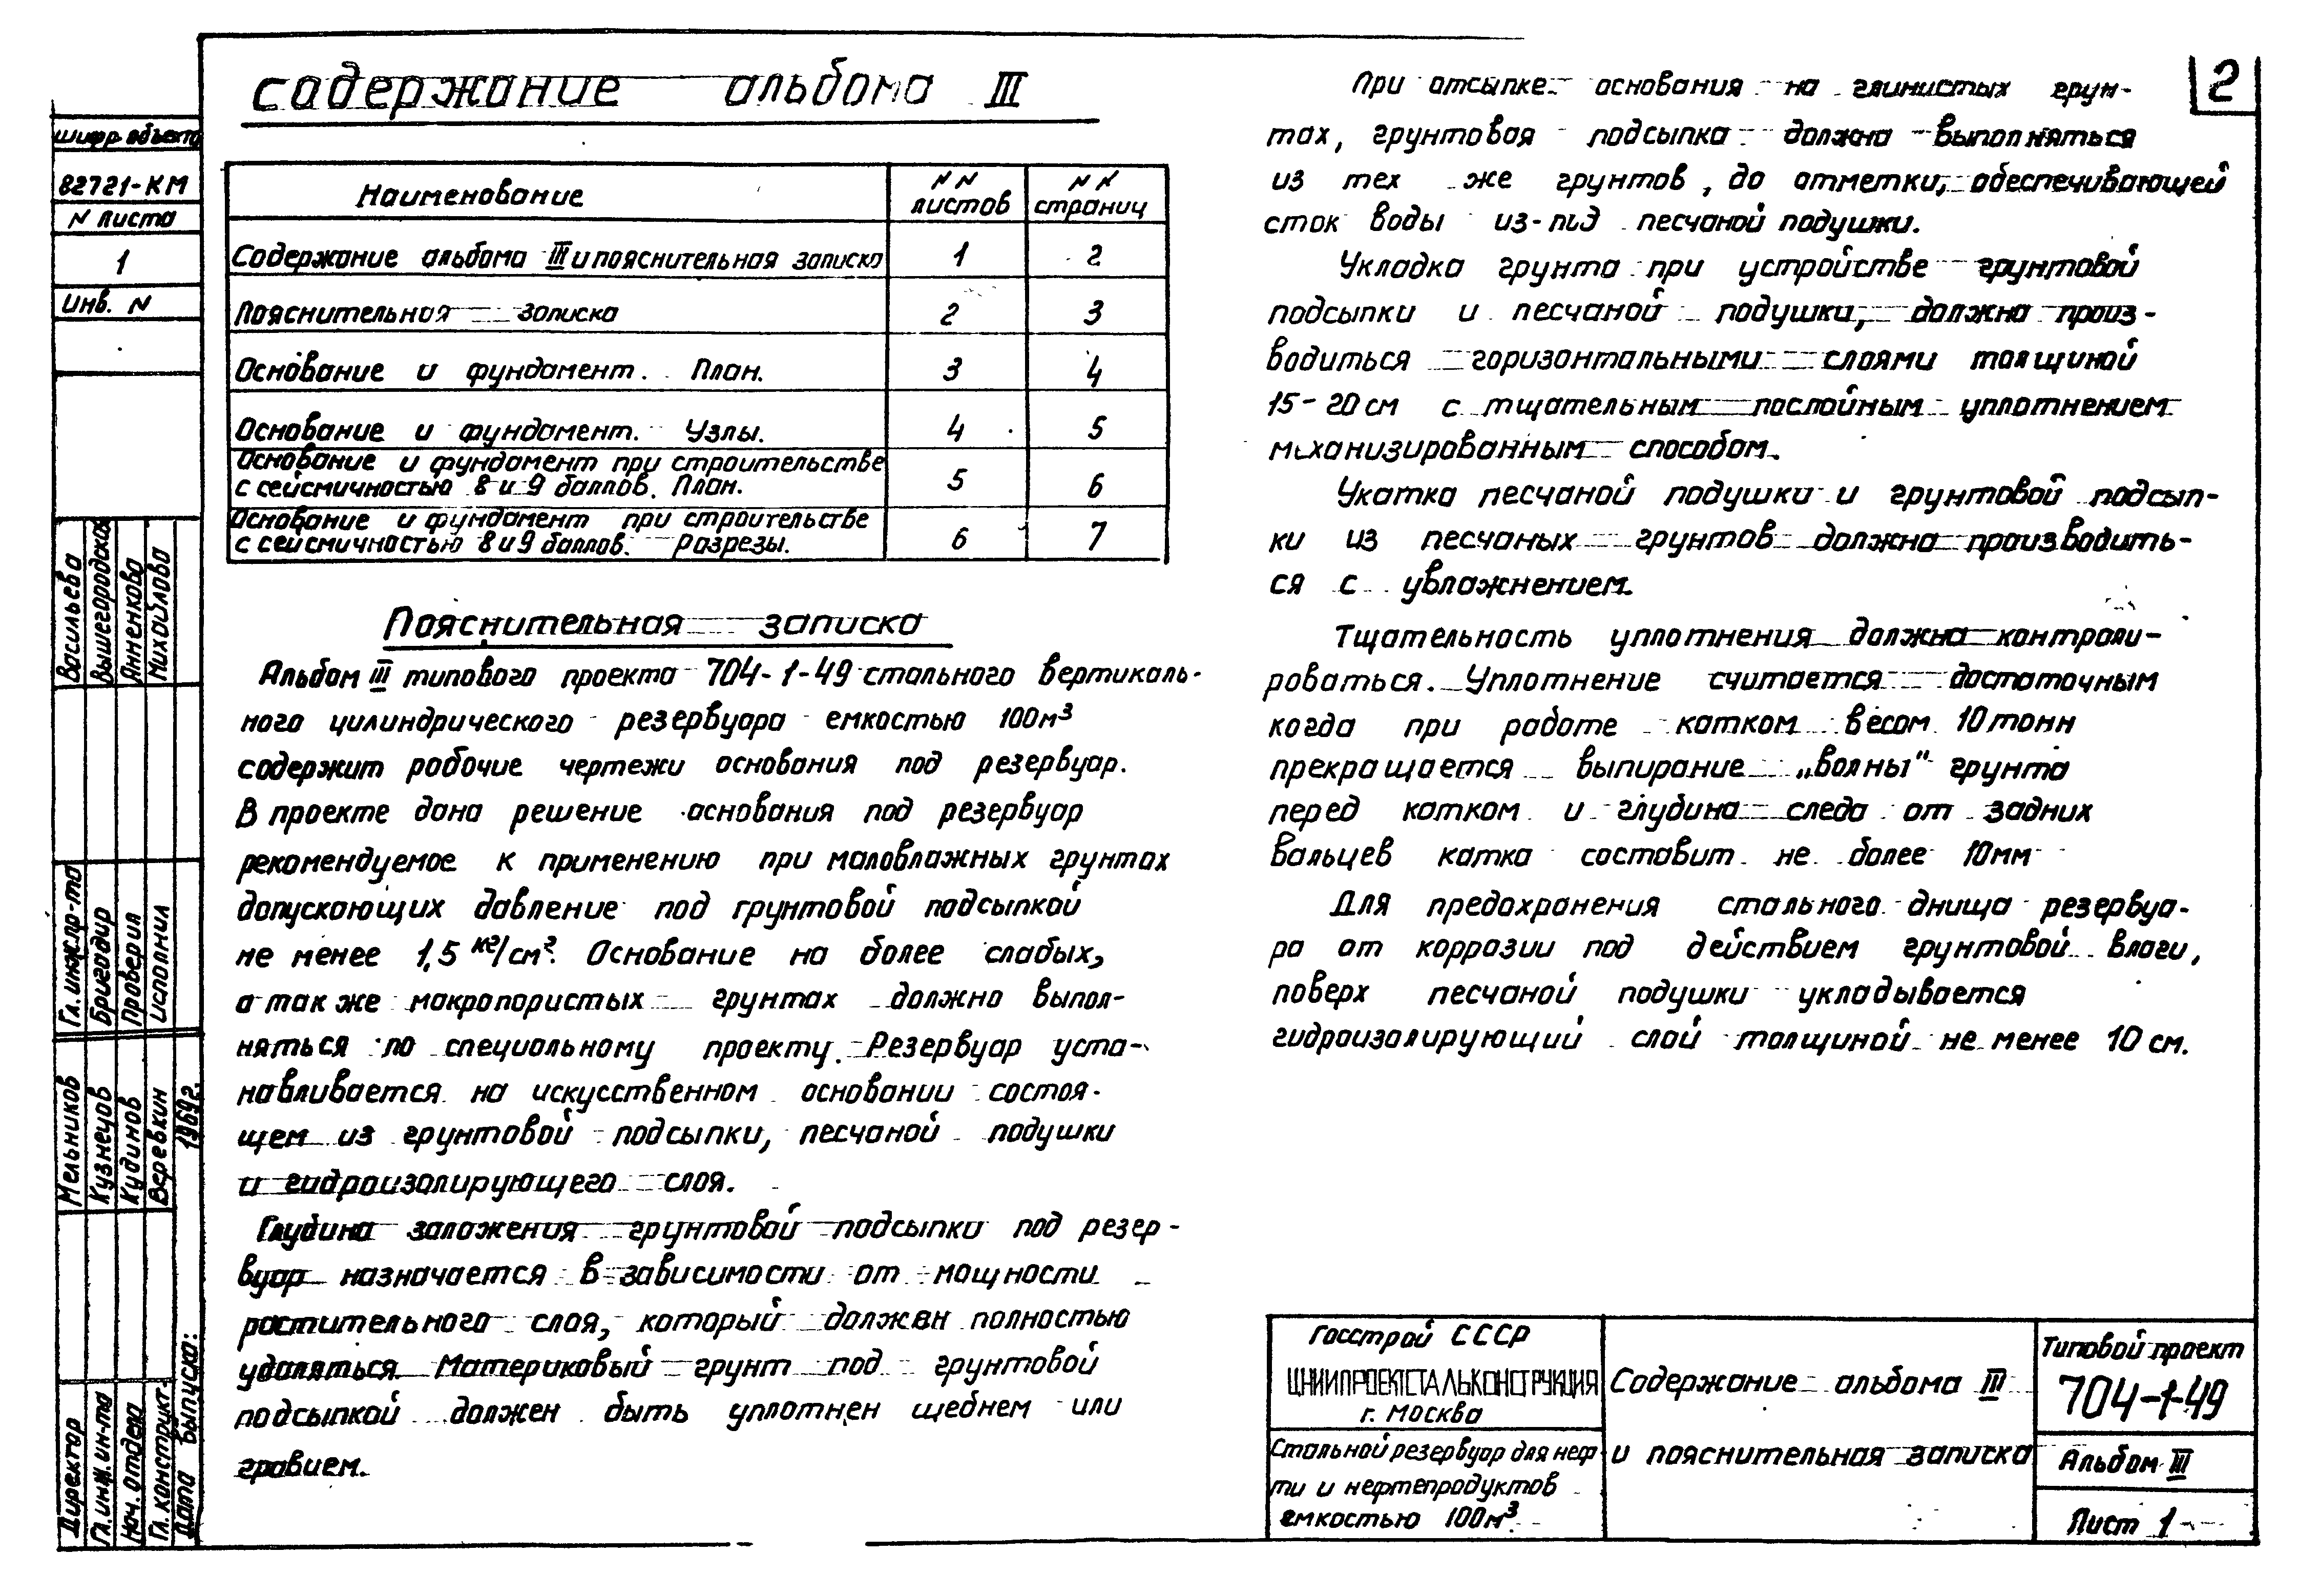 2
содержание альбома III
Наименование
NN листов
NN страниц
Содержание альбома III и пояснительная записка 1 2
Пояснительная записка 2 3
Основание и фундамент. План. 3 4
Основание и фундамент. Узлы. 4 5
Основание и фундамент при строительстве
с сейсмичностью 8 и 9 баллов. План. 5 6
Основание и фундамент при строительстве
с сейсмичностью 8 и 9 баллов. Разрезы. 6 7
Пояснительная записка
Альбом III типового проекта 704-1-49 стального вертикаль-
ного цилиндрического резервуара емкостью 100м³
содержит рабочие чертежи основания под резервуар.
В проекте дана решение основания под резервуар
рекомендуемое к применению при маловлажных грунтах
допускающих давление под грунтовой подсыпкой
не менее 1,5 кг/см². Основание на более слабых,
а так же макропористых грунтах должно выпол-
няться по специальному проекту. Резервуар уста-
навливается на искусственном основании состоя-
щем из грунтовой подсыпки, песчаной подушки
и гидроизолирующего слоя.
Глубина заложения грунтовой подсыпки под резер-
вуар назначается в зависимости от мощности
растительного слоя, который должен полностью
удаляться. Материковый грунт под грунтовой
подсыпкой должен быть уплотнен щебнем или
гравием.
При отсыпке основания на глинистых грун-
тах, грунтовая подсыпка должна выполняться
из тех же грунтов, до отметки, обеспечивающей
сток воды из-под песчаной подушки.
Укладка грунта при устройстве грунтовой
подсыпки и песчаной подушки, должна произ-
водиться горизонтальными слоями толщиной
15-20 см с тщательным послойным уплотнением
механизированным способом.
Укатка песчаной подушки и грунтовой подсып-
ки из песчаных грунтов должна производить-
ся с увлажнением.
Тщательность уплотнения должна контроли-
роваться. Уплотнение считается достаточным
когда при работе катком весом 10 тонн
прекращается выпирание „волны" грунта
перед катком и глубина следа от задних
вальцев катка составит не более 10мм
Для предохранения стального днища резервуа-
ра от коррозии под действием грунтовой влаги,
поверх песчаной подушки укладывается
гидроизолирующий слой толщиной не менее 10 см.
Госстрой СССР
ЦНИИПРОЕКТСТАЛЬКОНСТРУКЦИЯ
г. Москва
Стальной резервуар для неф-
ти и нефтепродуктов
емкостью 100м³
Содержание альбома III
и пояснительная записка
Типовой проект
704-1-49
Альбом III
Лист 1
шифр объекта
82721-КМ
N листа
1
Инв. N
Васильева
Вышегородская
Анненкова
Михайлова
Гл. инж. пр-та
Бригадир
Проверил
Исполнил
Мельников
Кузнецов
Кудинов
Веревкин
1969г.
Директор
Гл. инж. ин-та
Нач. отдела
Гл. конструкт.
Дата выпуска: